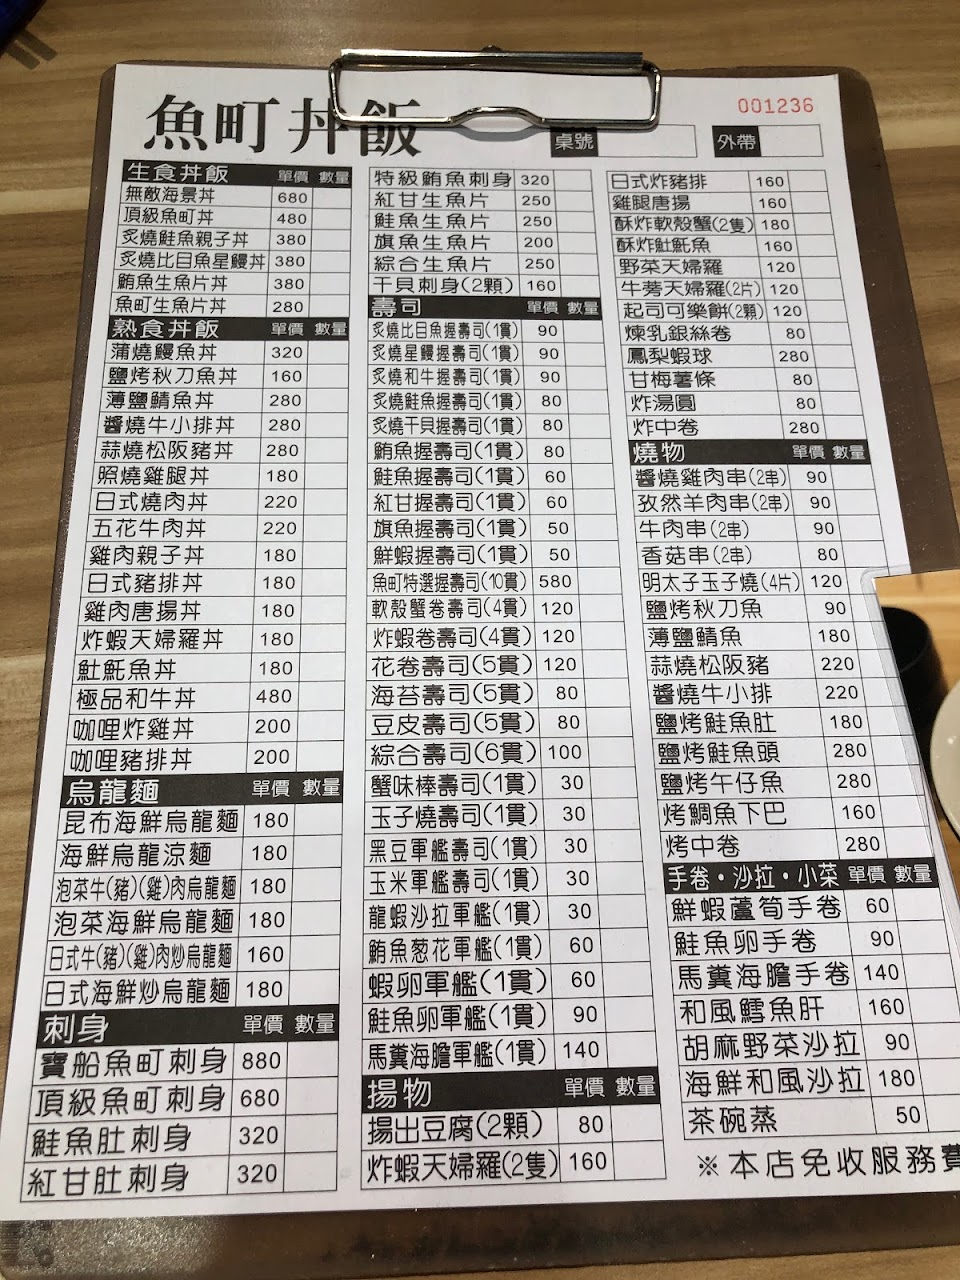 魚町丼飯
001236
桌號
外帶
生食丼飯 單價 數量
無敵海景丼 680
頂級魚町丼 480
炙燒鮭魚親子丼 380
炙燒比目魚星鰻丼 380
鮪魚生魚片丼 380
魚町生魚片丼 280
熟食丼飯 單價 數量
蒲燒鰻魚丼 320
鹽烤秋刀魚丼 160
薄鹽鯖魚丼 280
醬燒牛小排丼 280
蒜燒松阪豬丼 280
照燒雞腿丼 180
日式燒肉丼 220
五花牛肉丼 220
雞肉親子丼 180
日式豬排丼 180
雞肉唐揚丼 180
炸蝦天婦羅丼 180
魠魠魚丼 180
極品和牛丼 480
咖哩炸雞丼 200
咖哩豬排丼 200
烏龍麵 單價 數量
昆布海鮮烏龍麵 180
海鮮烏龍涼麵 180
泡菜牛(豬)(雞)肉烏龍麵 180
泡菜海鮮烏龍麵 180
日式牛(豬)(雞)肉炒烏龍麵 160
日式海鮮炒烏龍麵 180
刺身 單價 數量
寶船魚町刺身 880
頂級魚町刺身 680
鮭魚肚刺身 320
紅甘肚刺身 320
特級鮪魚刺身 320
紅甘生魚片 250
鮭魚生魚片 250
旗魚生魚片 200
綜合生魚片 250
干貝刺身(2顆) 160
壽司 單價 數量
炙燒比目魚握壽司(1貫) 90
炙燒星鰻握壽司(1貫) 90
炙燒和牛握壽司(1貫) 90
炙燒鮭魚握壽司(1貫) 80
炙燒干貝握壽司(1貫) 80
鮪魚握壽司(1貫) 80
鮭魚握壽司(1貫) 60
紅甘握壽司(1貫) 60
旗魚握壽司(1貫) 50
鮮蝦握壽司(1貫) 50
魚町特選握壽司(10貫) 580
軟殼蟹卷壽司(4貫) 120
炸蝦卷壽司(4貫) 120
花卷壽司(5貫) 120
海苔壽司(5貫) 80
豆皮壽司(5貫) 80
綜合壽司(6貫) 100
蟹味棒壽司(1貫) 30
玉子燒壽司(1貫) 30
黑豆軍艦壽司(1貫) 30
玉米軍艦壽司(1貫) 30
龍蝦沙拉軍艦(1貫) 30
鮪魚葱花軍艦(1貫) 60
蝦卵軍艦(1貫) 60
鮭魚卵軍艦(1貫) 90
馬糞海膽軍艦(1貫) 140
揚物 單價 數量
揚出豆腐(2顆) 80
炸蝦天婦羅(2隻) 160
日式炸豬排 160
雞腿唐揚 160
酥炸軟殼蟹(2隻) 180
酥炸魠魠魚 160
野菜天婦羅 120
牛蒡天婦羅(2片) 120
起司可樂餅(2顆) 120
煉乳銀絲卷 80
鳳梨蝦球 280
甘梅薯條 80
炸湯圓 80
炸中卷 280
燒物 單價 數量
醬燒雞肉串(2串) 90
孜然羊肉串(2串) 90
牛肉串(2串) 90
香菇串(2串) 80
明太子玉子燒(4片) 120
鹽烤秋刀魚 90
薄鹽鯖魚 180
蒜燒松阪豬 220
醬燒牛小排 220
鹽烤鮭魚肚 180
鹽烤鮭魚頭 280
鹽烤午仔魚 280
烤鯛魚下巴 160
烤中卷 280
手卷・沙拉・小菜 單價 數量
鮮蝦蘆筍手卷 60
鮭魚卵手卷 90
馬糞海膽手卷 140
和風鱈魚肝 160
胡麻野菜沙拉 90
海鮮和風沙拉 180
茶碗蒸 50
※本店免收服務費